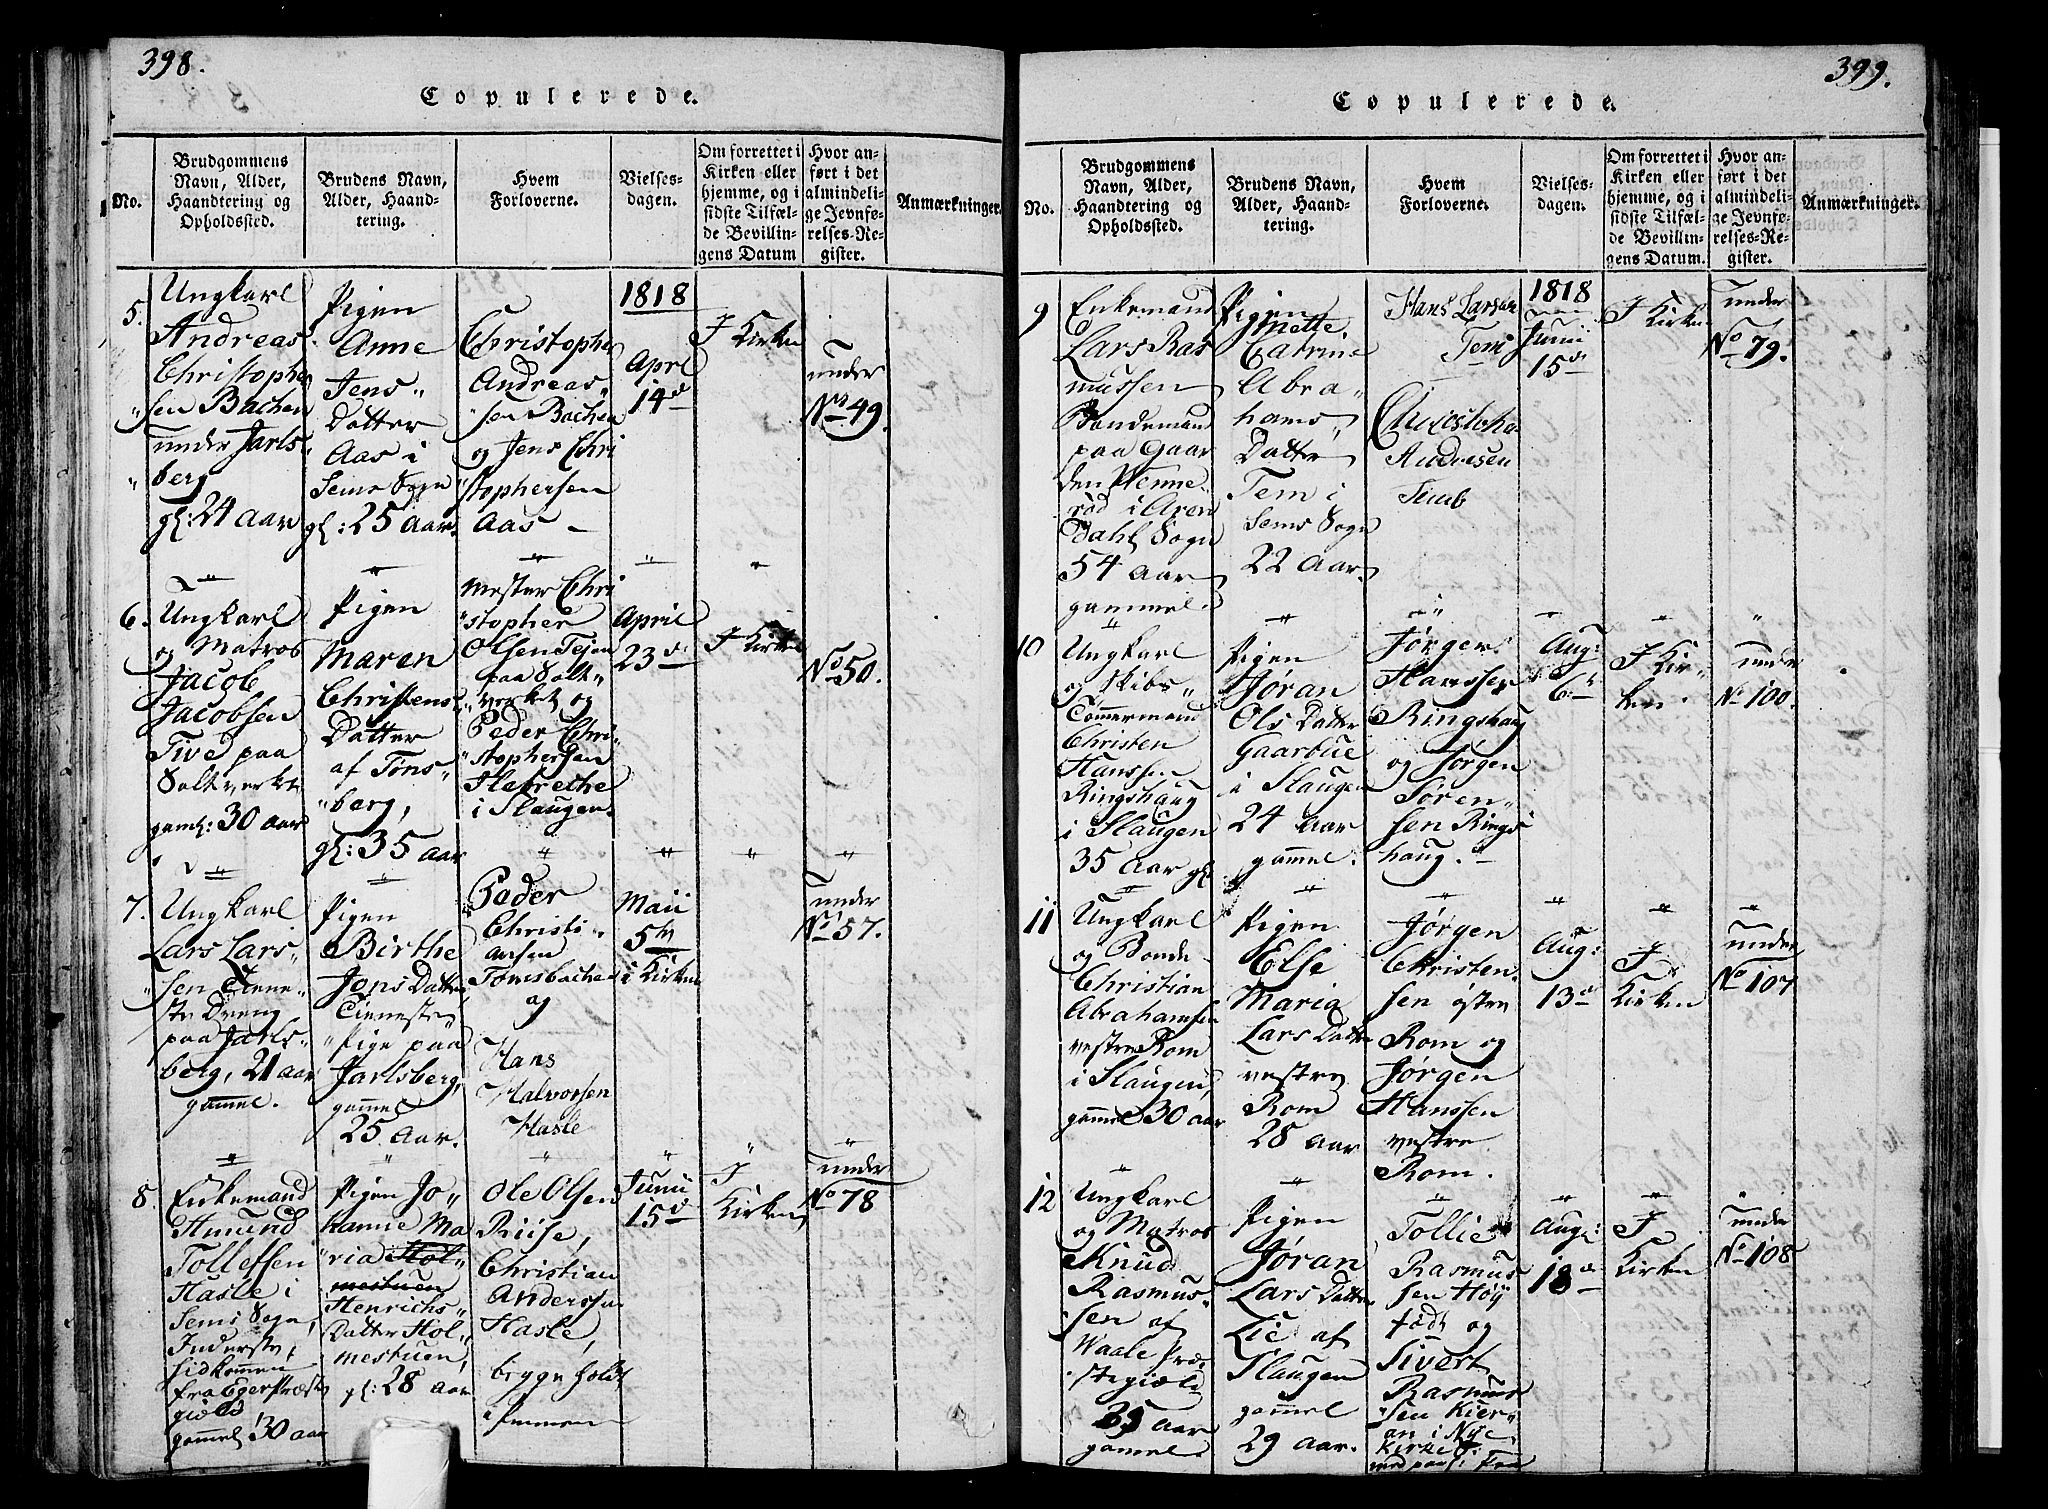 398.
Copulerede.
No.
Brudgommens
Navn, Alder,
Haandtering og
Opholdssted.
Brudens Navn,
Alder, Haand-
tering.
Hvem
Forloverne.
Vielses-
dagen.
Om forrettet i
Kirken eller
hjemme, og i
sidste Tilfæl-
de Bevillin-
gens Datum
Hvor an-
ført i det
almindeli-
ge Jevnfø-
relses-Re-
gister.
Anmærkninger.
5.
Ungkarl
Andreas
Christopher
sen Bachen
under Jarls-
berg
gl: 24 aar
Pigen
Anne
Jens-
Datter
Aas i
Sems Sogn
gl: 25 aar.
Christopher
Andreas-
sen Bachen
og Jens Chri
stophersen
Aas
1818
Apri
14d
I Kirken
under
No 49.
6.
Ungkarl
og Matros
Jacob
Jacobsen
Tive paa
Saltverket
gaml: 30 aar
Pigen
Maren
Christens
Datter
af Tøns-
berg,
gl: 35 aar
mester Chri
stopher
Olsen Tejen
paa Salt-
verket og
Peder Chri-
stophersen
i Slaugen.
April
23d
I Kirken
No 50.
7.
Ungkarl
Lars Lars-
sen Tiene-
ste Dreng
paa Jarls-
berg, 21 aar
gammel.
Pigen
Birthe
Jons Datter
Tieneste
Pige paa
Jarlsberg,
gammel
25 aar.
Peder
Christi-
ansen
Tomsbachen
og
Hans
Halvorsen
Hasle
Maii
5te
i Kirken
under
No 57.
8.
Enkemand
Amund
Tollefsen
Hasle i
Sems Sogn,
Inderste,
sidkommen
fra Eger Præste
gield
gammel 30 aar
Pigen Jo-
hanne Ma
ria Hol-
mestuen
Henrichs-
Datter Hol-
mestuen,
gl: 28 aar
Ole Olsen
Riise,
Christian
Anderssen
Hasle,
begge holdt
Junii
15d
I
Kirken
under
No 78
399.
Copulerede.
No.
Brudgommens
Navn, Alder,
Haandtering og
Opholdssted.
Brudens Navn,
Alder, Haand-
tering.
Hvem
Forloverne.
Vielses-
dagen.
Om forrettet i
Kirken eller
hjemme, og i
sidste Tilfæl-
de Bevillin-
gens Datum.
Hvor an-
ført i det
almindeli-
ge Jevnfø-
relses-Re-
gister.
Anmærkninger.
9
Enkemand
Lars Ras
mussen
Bondemand
paa Gaar
den Wenne-
rød i Aren
Dahl Sogn
54 aar
gammel.
Pigen
Mette
Catrine
Abra-
hams
Datter
Tem i
Sems Sogn
22 Aar.
Hans Larsen
Tem
Christoher
Andresen
1818
Junii
15d
I Kirken
under
No 79.
10
Ungkarl
og Skibs-
Tømmermand
Christen
Hanssen
Ringshaug
i Slaugen
35 aar gl.
Pigen
Jøran
Ols Datter
Gaarbue
i Slaugen
24 aar
gammel.
Jørgen
Hanssen
Ringshaug
og Jørgen
Søren-
sen Rings
haug.
Aug:
6te
I Kir-
ken
under
No 100.
11
Ungkarl
og Bonde
Christian
Abrahamsen
vestre Rom
i Slaugen
gammel 30 aar
Pigen
Else
Maria
Lars Datter
vestre
Rom
28 aar
Jørgen
Christen-
sen østre
Rom og
Jørgen
Hanssen
vestre
Rom.
Aug:
13d
I
Kirken
under
No 107
12
Ungkarl
og Matros
Knud
Rasmus-
sen af
Waale Præ-
stegield
gammel.
Pigen
Jøran
Lars Datter
Lie af
Slaugen
gammel
29 aar.
Tollie
Rasmus
sen Høy
todt og
Sivert
Rasmus
sen Kier-
an i Nye
Kirke
Aug:
18d
I
Kirken
under
No 108